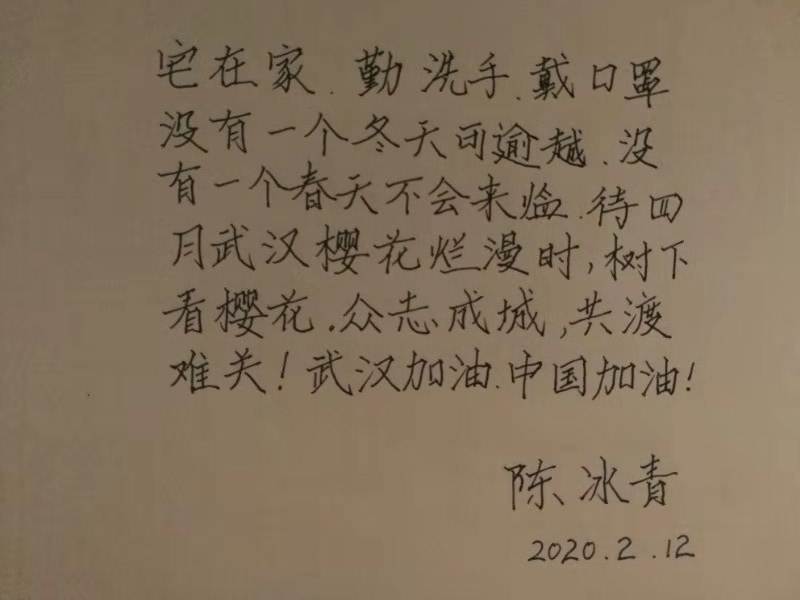 宅在家.勤洗手.戴口罩
没有一个冬天可逾越.没
有一个春天不会来临.待四
月武汉樱花烂漫时,树下
看樱花.众志成城,共渡
难关!武汉加油.中国加油!
陈冰青
2020.2.12